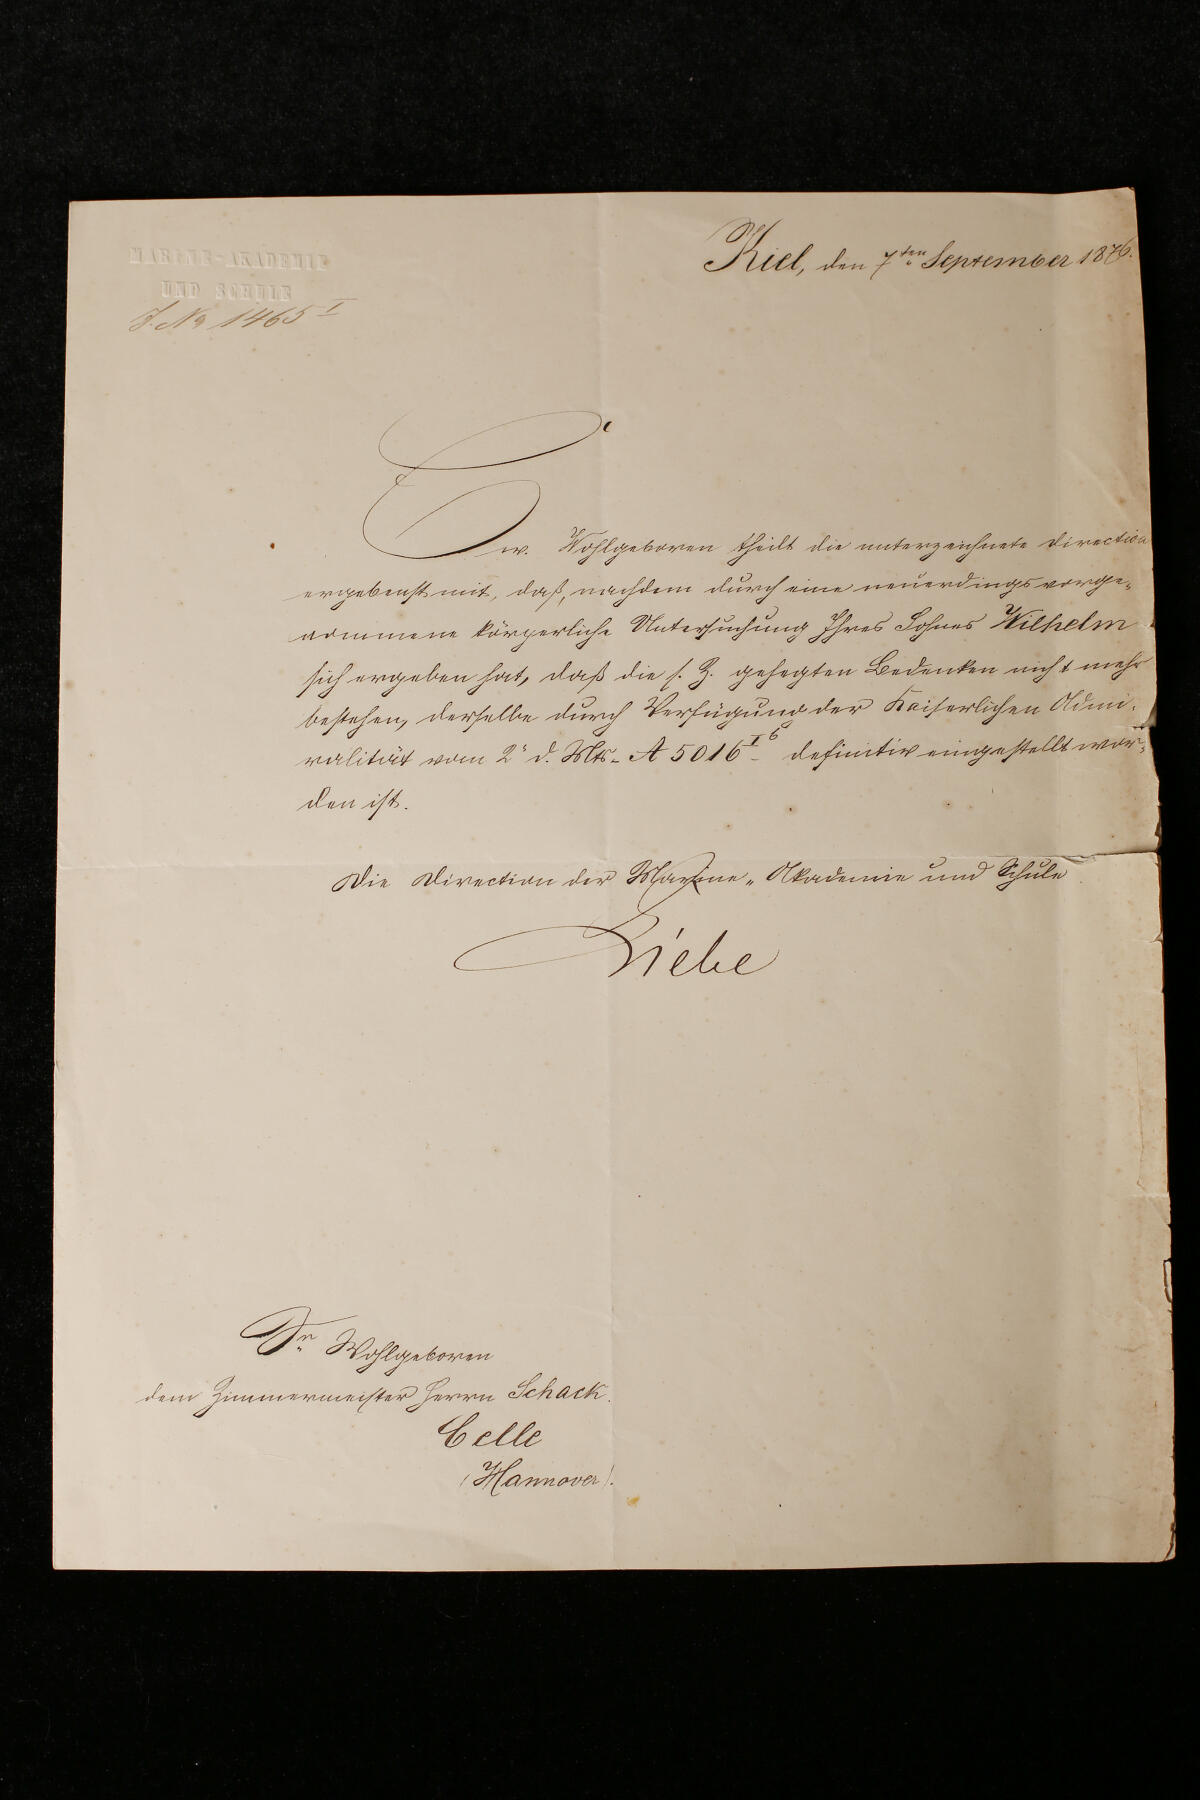 MARINE-AKADEMIE
UND SCHULE
J. No 1465 I
Kiel, den 7ten September 1876.
Ew. Wohlgeboren theilt die unterzeichnete Direction
ergebenst mit, daß, nachdem durch eine neuerdings vorge-
nommene körperliche Untersuchung Ihres Sohnes Wilhelm
sich ergeben hat, daß die s. Z. gehegten Bedenken nicht mehr
bestehen, derselbe durch Verfügung der Kaiserlichen Admi-
ralität vom 2n d. Mts- A 5016 I 6 - definitiv eingestellt wor-
den ist.
Die Direction der Marine-Akademie und Schule
Liebe
Sr Wohlgeboren
dem Zimmermeister Herrn Schack.
Celle
(Hannover).